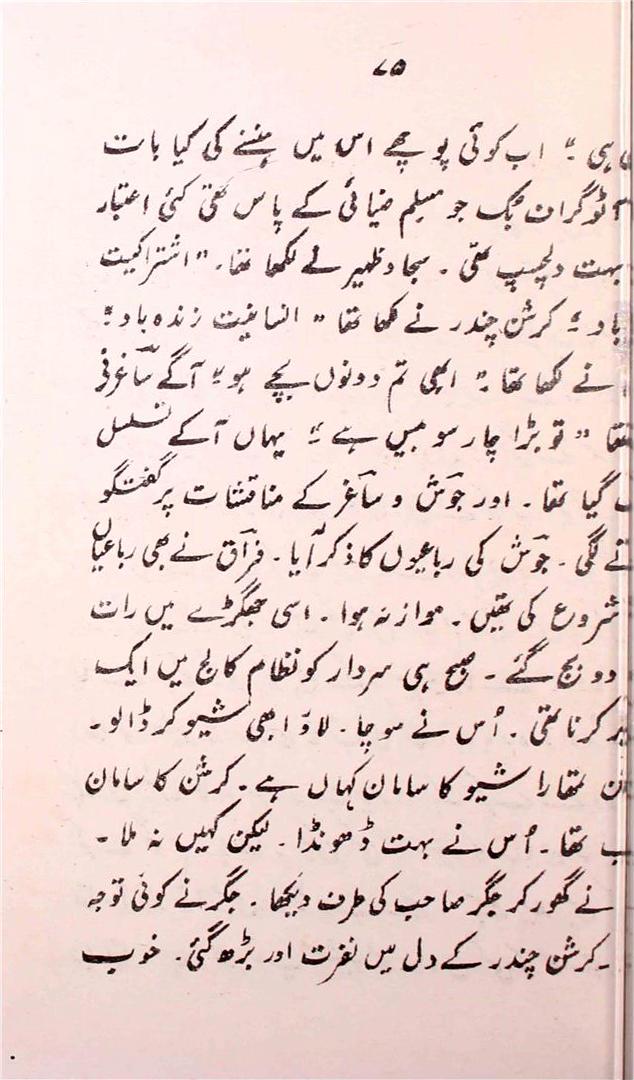 ۷۵
ہی ؛" اب کوئی پوچھے اس میں ہنسنے کی کیا بات
آٹوگراف بک جو مسلم ضیائی کے پاس تھی کئی اعتبار
بہت دلچسپ تھی ۔ سجاد ظہیر نے لکھا تھا۔ " اشتراکیت
باد ؛" کرشن چندر نے لکھا تھا " انسانیت زندہ باد ؛"
نے لکھا تھا ؛" ابھی تم دونوں بچے ہو " آگے ساغر نے
" تو بڑا چار سو بیس ہے ؛" یہاں آکے تسلسل
گیا تھا ۔ اور جوش و ساغر کے مناقشات پر گفتگو
لگی ۔ جوش کی رباعیوں کا ذکر آیا ۔ فراق نے بھی رباعیاں
شروع کی تھیں ۔ موازنہ ہوا ۔ اسی جھگڑے میں رات
دو بج گئے ۔ صبح ہی سردار کو نظام کالج میں ایک
کرنا تھی ۔ اُس نے سوچا ۔ لاؤ ابھی شیو کر ڈالو ۔
تمھارا شیو کا سامان کہاں ہے ۔ کرشن کا سامان
تھا ۔ اُس نے بہت ڈھونڈا ۔ لیکن کہیں نہ ملا ۔
نے گھور کر جگر صاحب کی طرف دیکھا ۔ جگر نے کوئی توجہ
۔ کرشن چندر کے دل میں نفرت اور بڑھ گئی ۔ خوب